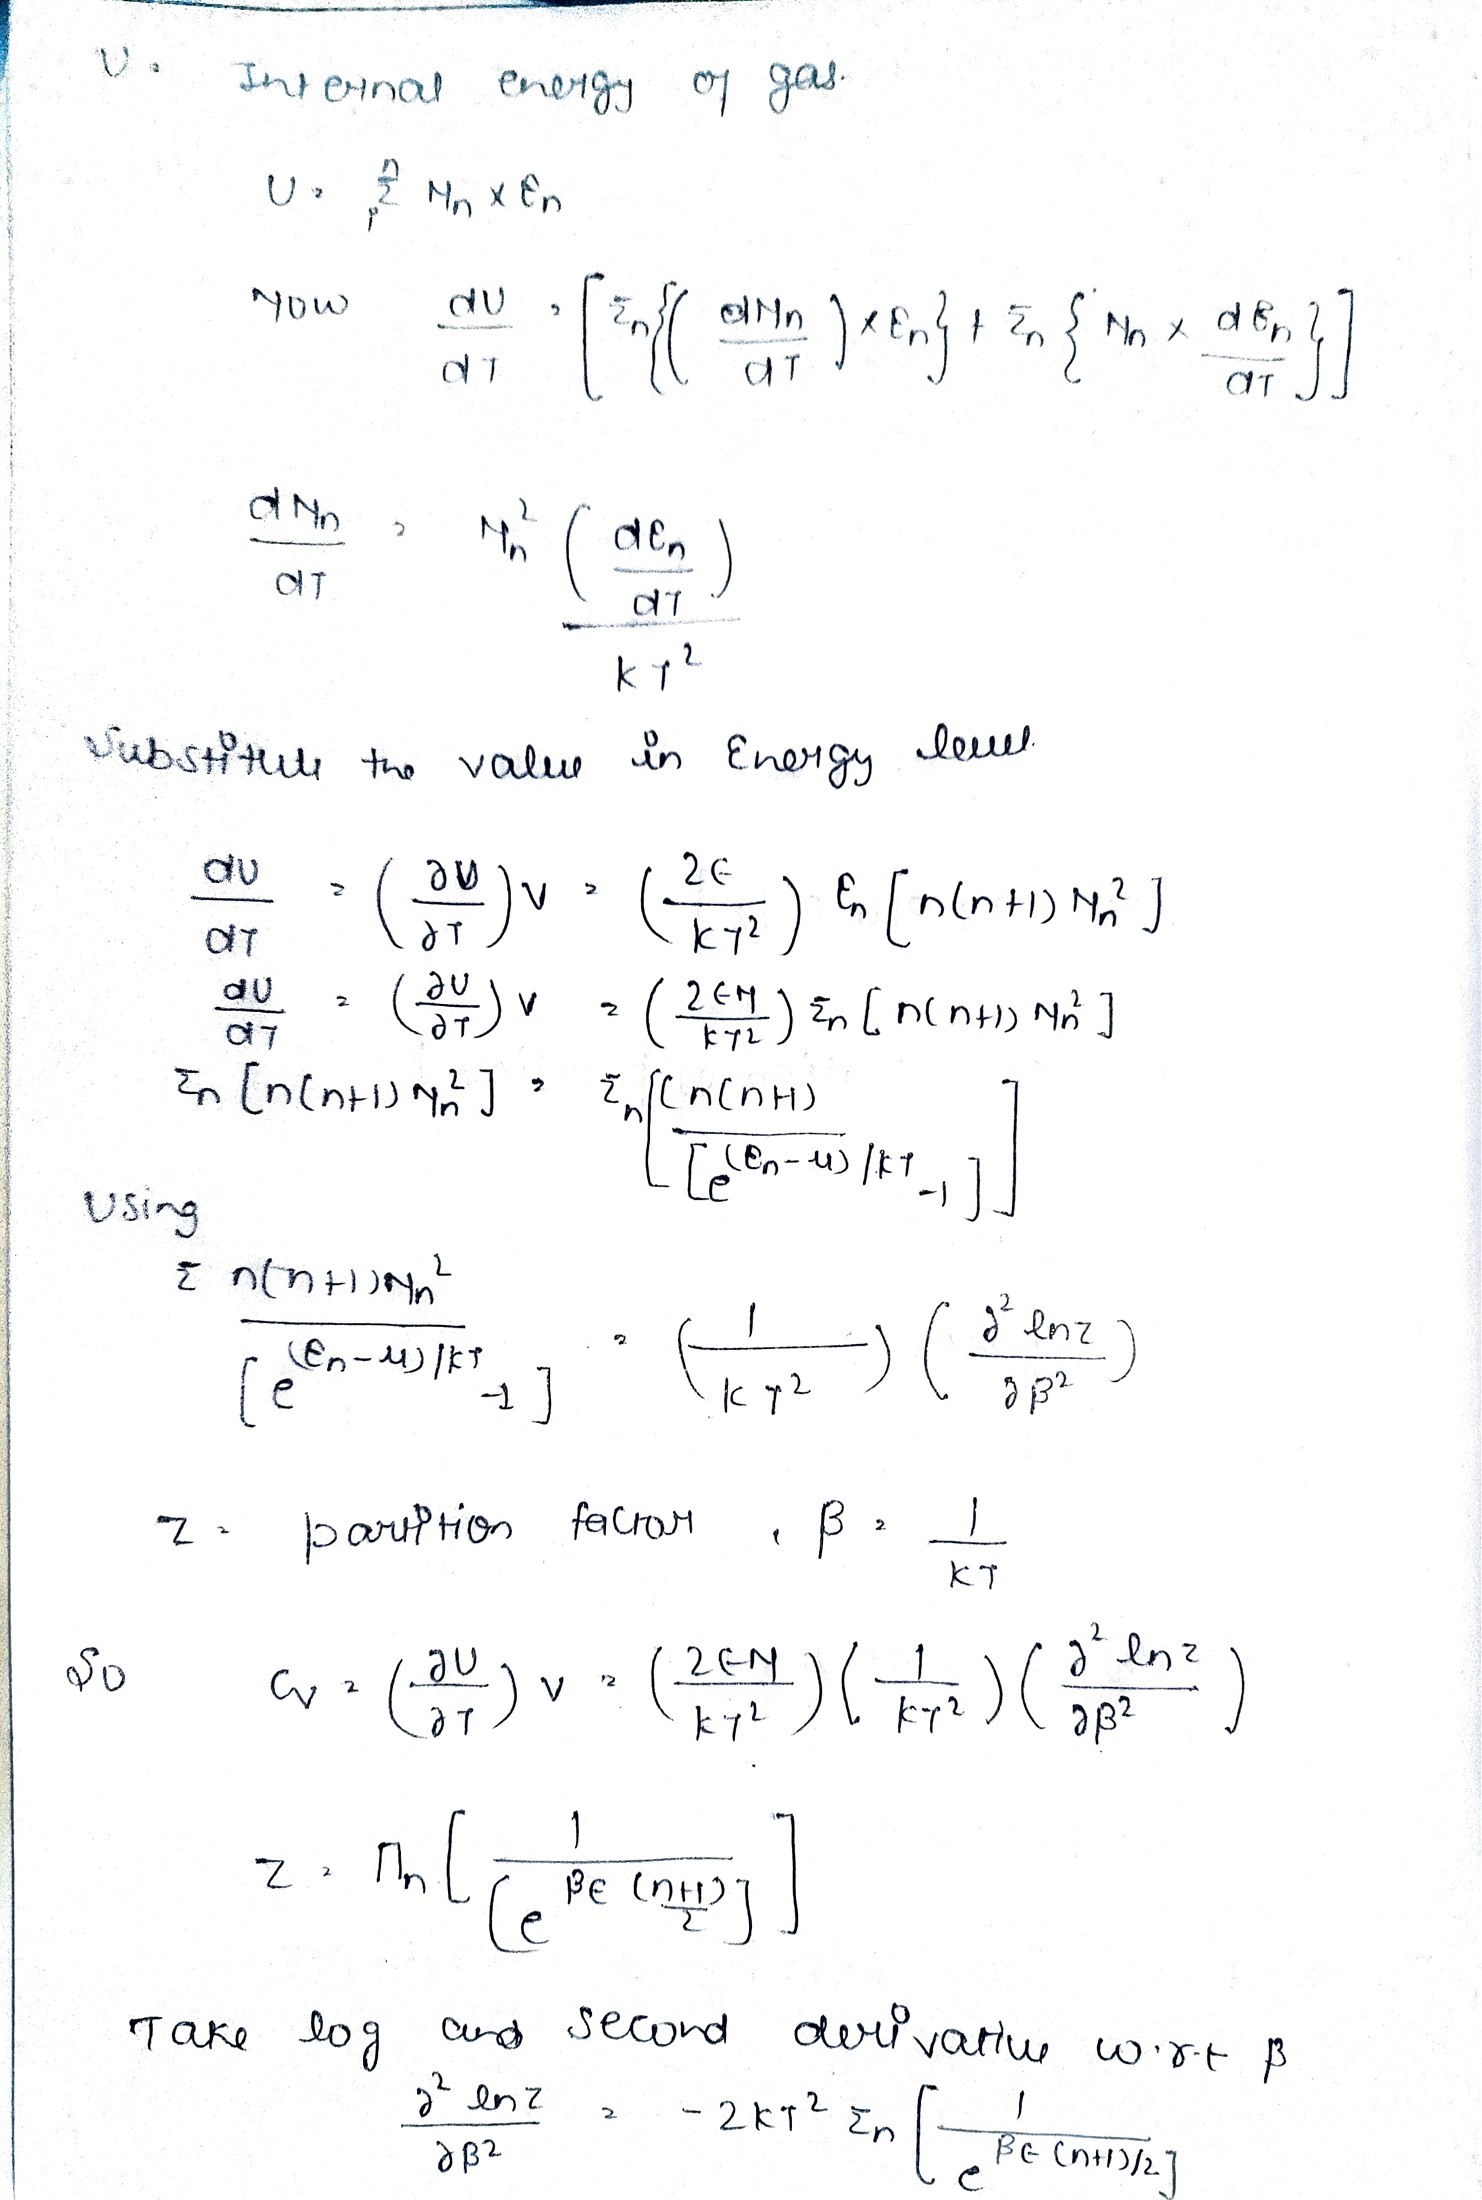 U = Internal energy of gas.
U = Σ Nn x En
Now dU/dT = [Σn{(dNn/dT) x En} + Σn{Nn x dEn/dT}]
dNn/dT = Nn² (dEn/dT) / kT²
Substitute the value in Energy level
dU/dT = (∂U/∂T)v = (2ϵ/kT²) En [n(n+1) Nn²]
dU/dT = (∂U/∂T)v = (2ϵN/kT²) Σn [n(n+1) Nn²]
Σn [n(n+1) Nn²] = Σn [[n(n+1) / [e^(En-μ)/kT -1]]
Using
Σ n(n+1)Nn² / [e^(En-μ)/kT -1] = (1/kT²) (∂² lnz/∂β²)
z = partition factor, β = 1/kT
So Cv = (∂U/∂T)v = (2ϵN/kT²) (1/kT²) (∂² lnz/∂β²)
z = Πn [1 / [e^βϵ (n+1)/2]]
Take log and second derivative w.r.t β
∂² lnz/∂β² = -2kT² Σn [1 / e^βϵ (n+1)/2]